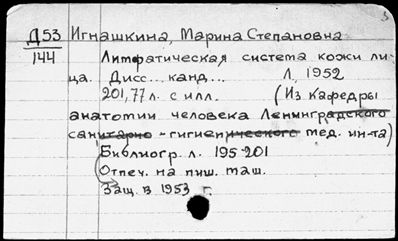 Д53 Игнашкина, Марина Степановна
144 Лимфатическая система кожи ли-
ца. Дисс... канд... Л, 1952
201,77 л. с илл. (Из Кафедры
анатомии человека Ленинградского
санитарно-гигиенического мед. ин-та)
Библиогр. л. 195-201
Отпеч. на пиш. маш.
Защ. в 1953 г.